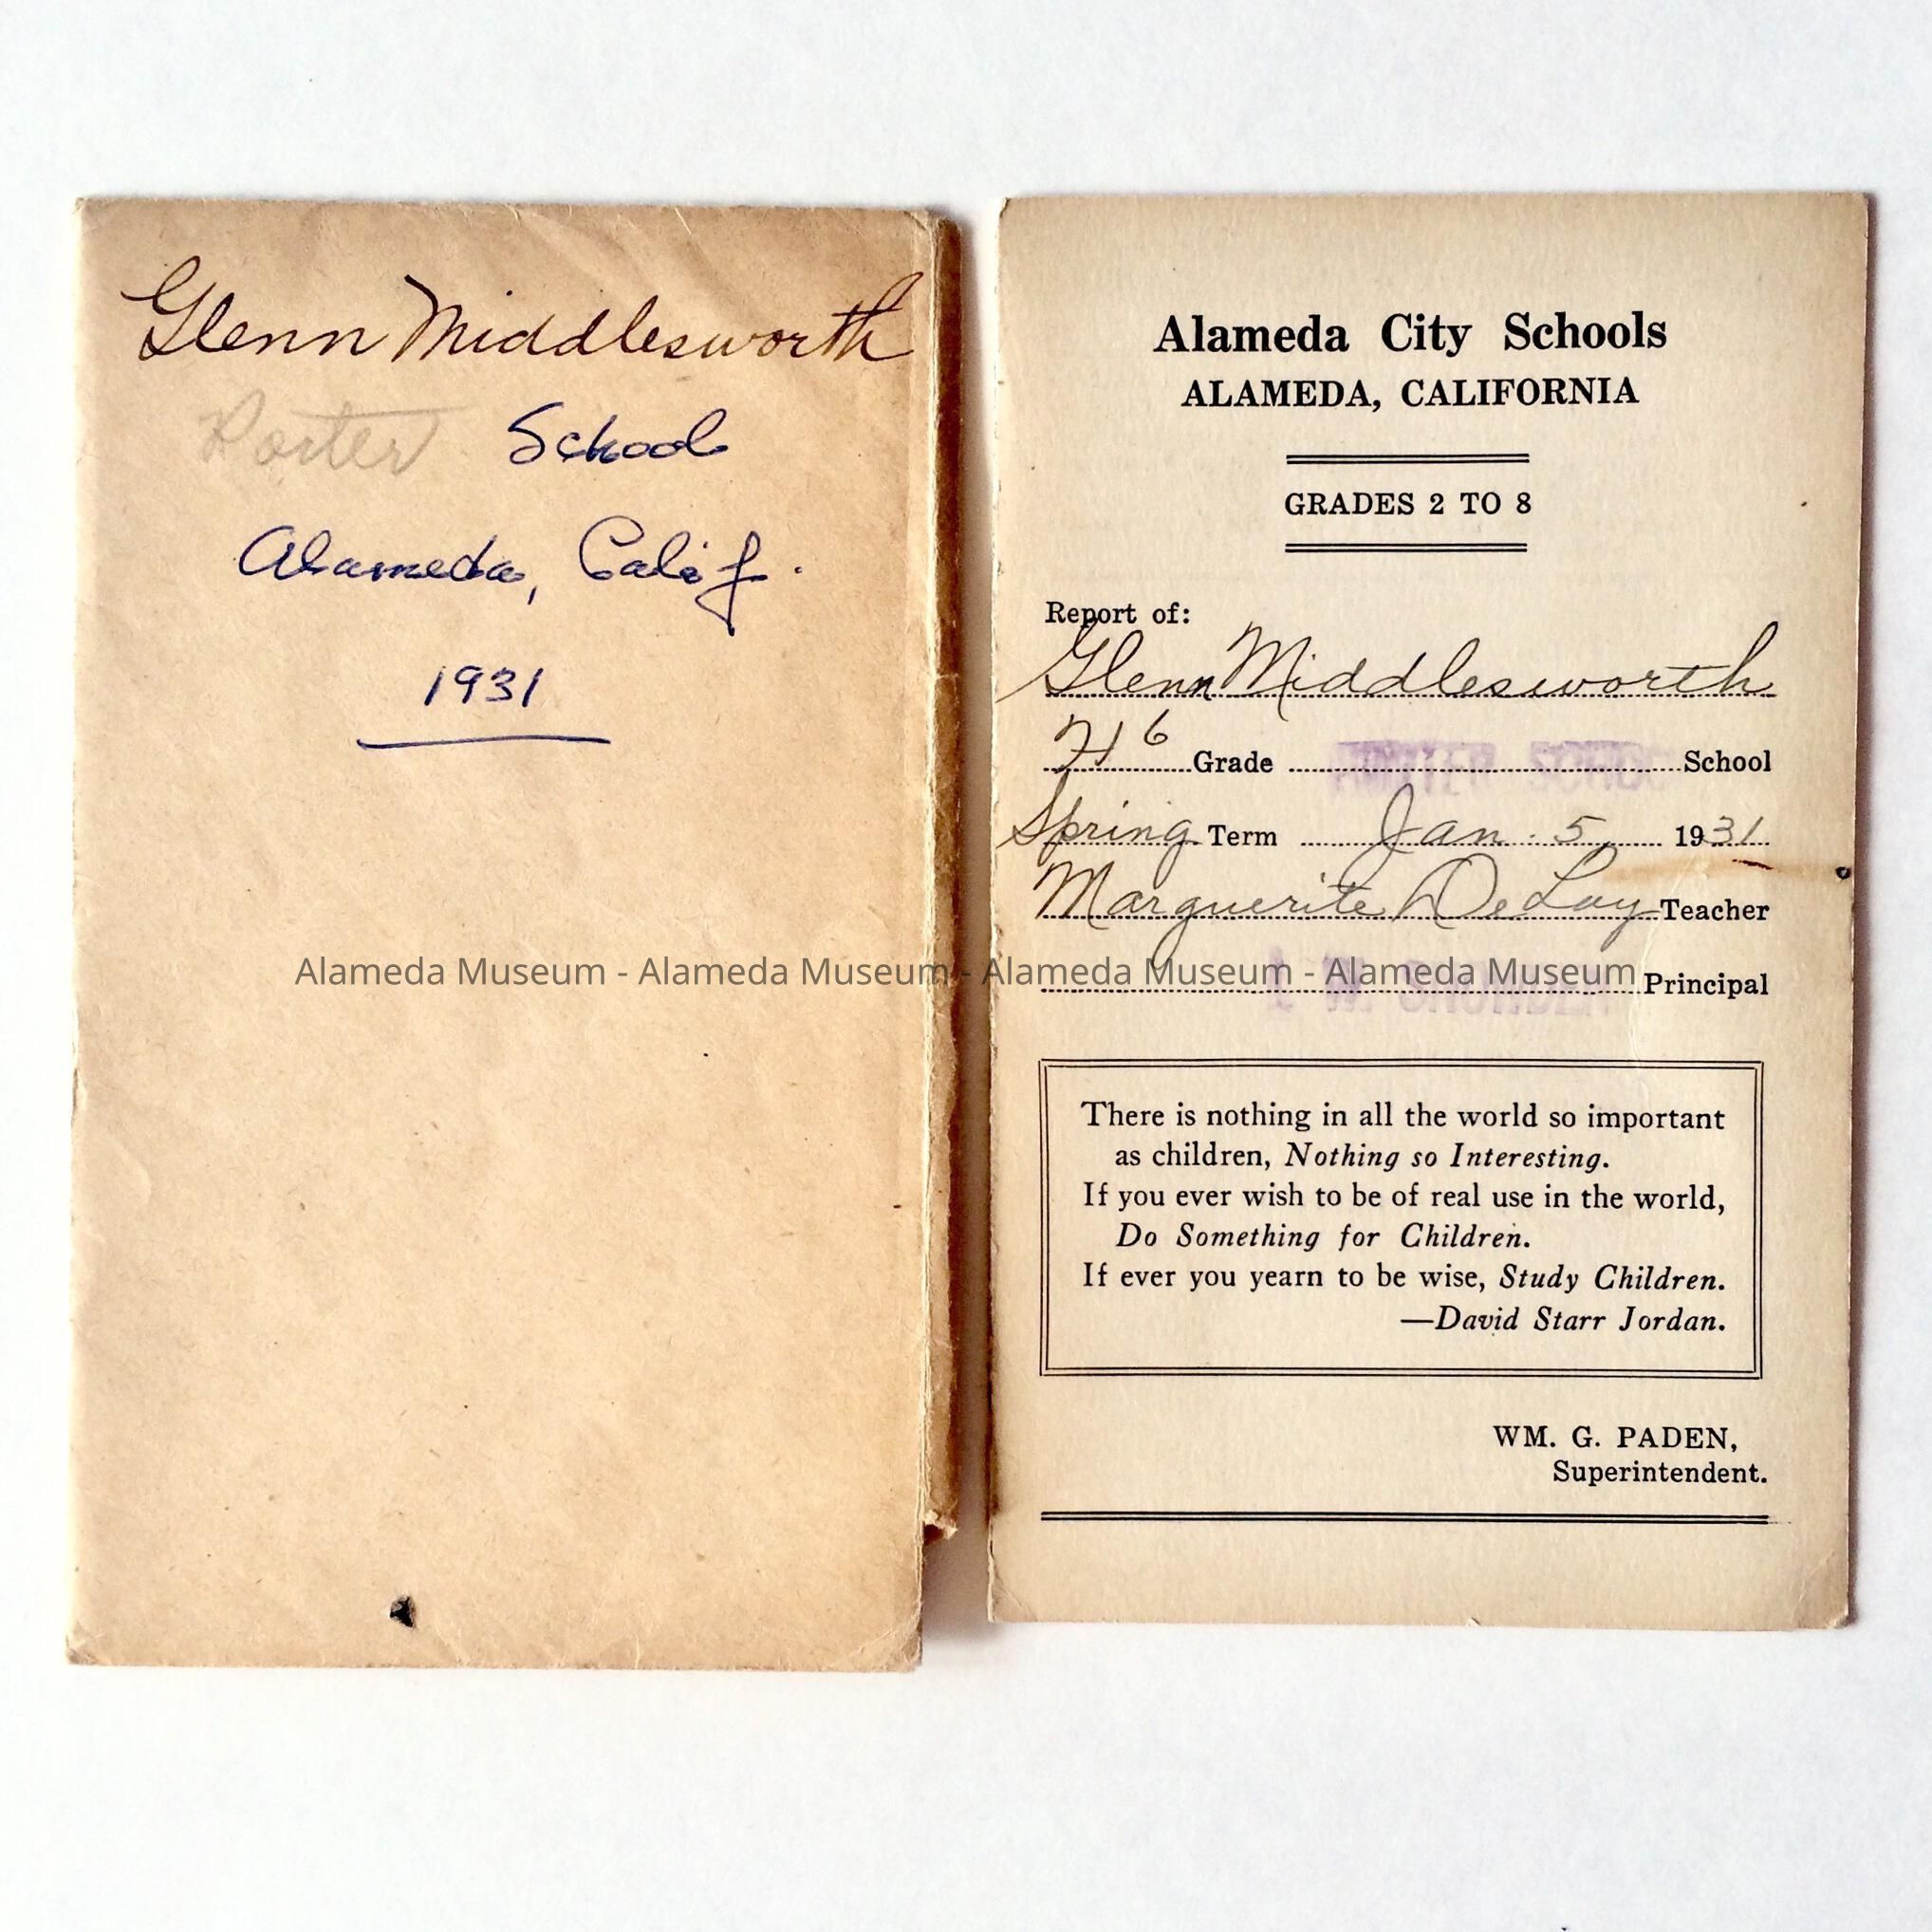 Glenn Middlesworth
Porter School
Alameda, Calif.
1931
Alameda City Schools
ALAMEDA, CALIFORNIA
GRADES 2 TO 8
Report of:
Glenn Middlesworth
H6 Grade School
Spring Term Jan. 5 1931
Marguerite De Lay Teacher
Principal
Alameda Museum - Alameda Museum - Alameda Museum - Alameda Museum
There is nothing in all the world so important
as children, Nothing so Interesting.
If you ever wish to be of real use in the world,
Do Something for Children.
If ever you yearn to be wise, Study Children.
—David Starr Jordan.
WM. G. PADEN,
Superintendent.